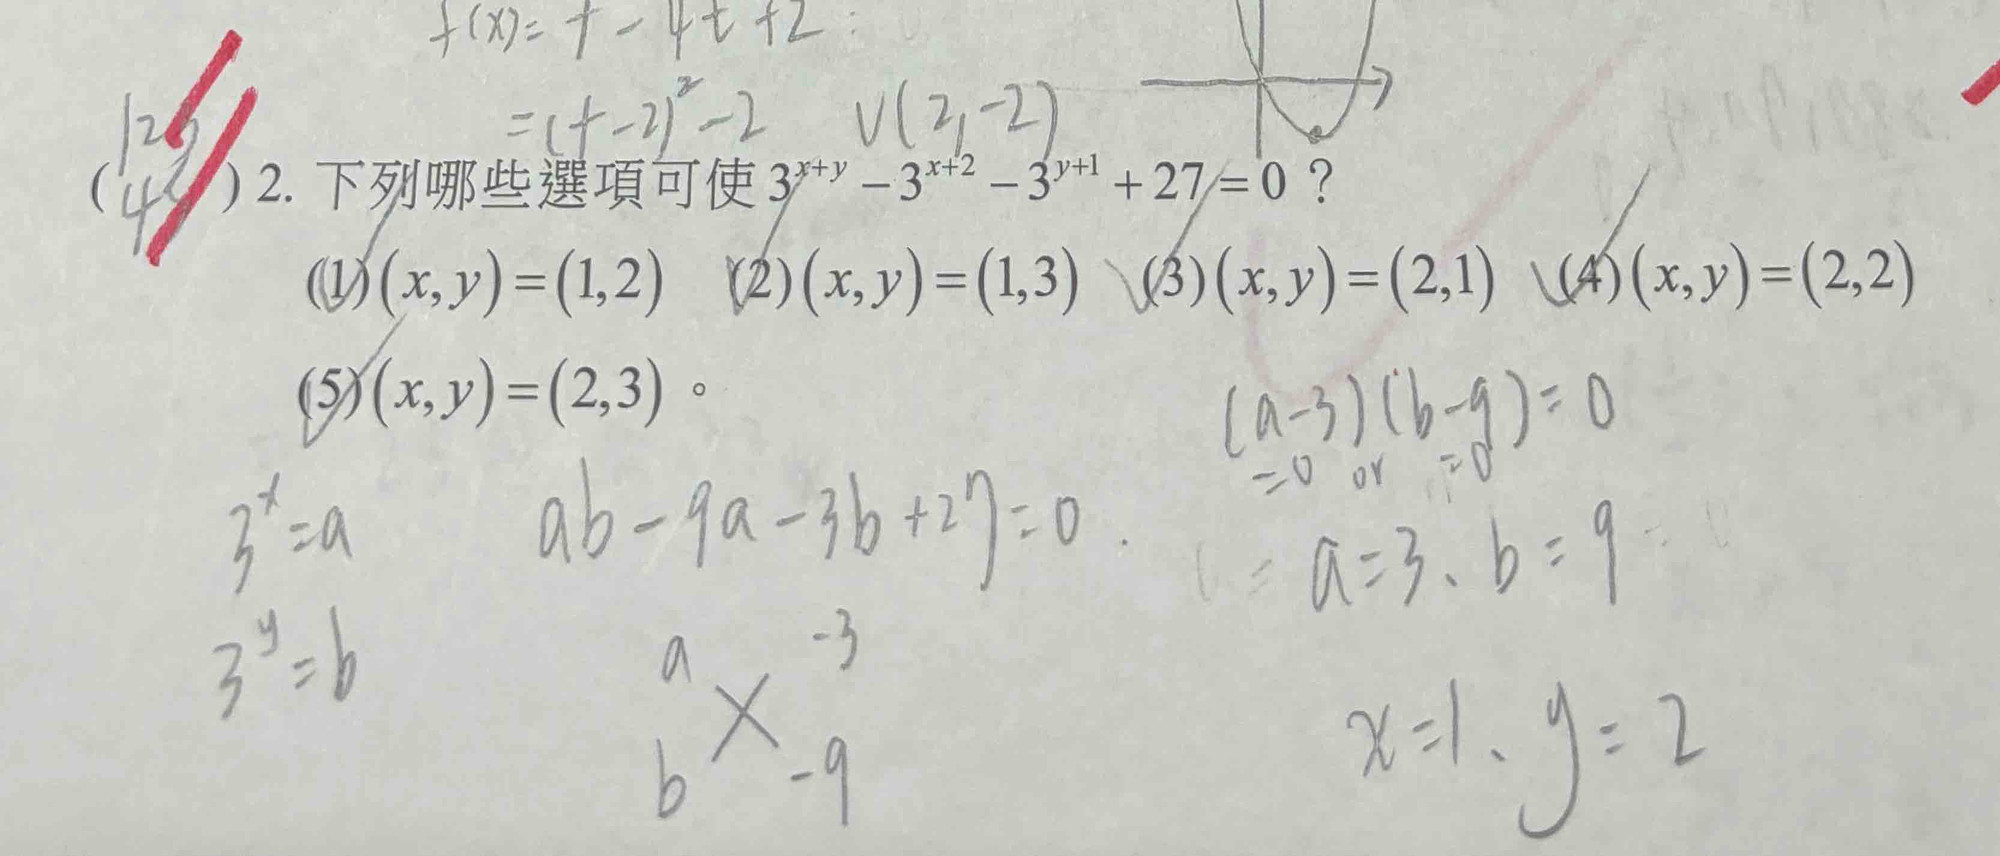 f(x)= t - 4t + 2
= (t-2)² - 2 V(2,-2)
( 123 45 ) 2. 下列哪些選項可使 3^{x+y} - 3^{x+2} - 3^{y+1} + 27 = 0 ?
(1)(x, y) = (1,2) (2)(x, y) = (1,3) (3)(x, y) = (2,1) (4)(x, y) = (2,2)
(5)(x, y) = (2,3)。
(a-3)(b-9)=0
=0 or =0
3^x = a ab - 9a - 3b + 27 = 0
a=3、b=9
3^y = b a -3
b -9
x=1、y=2